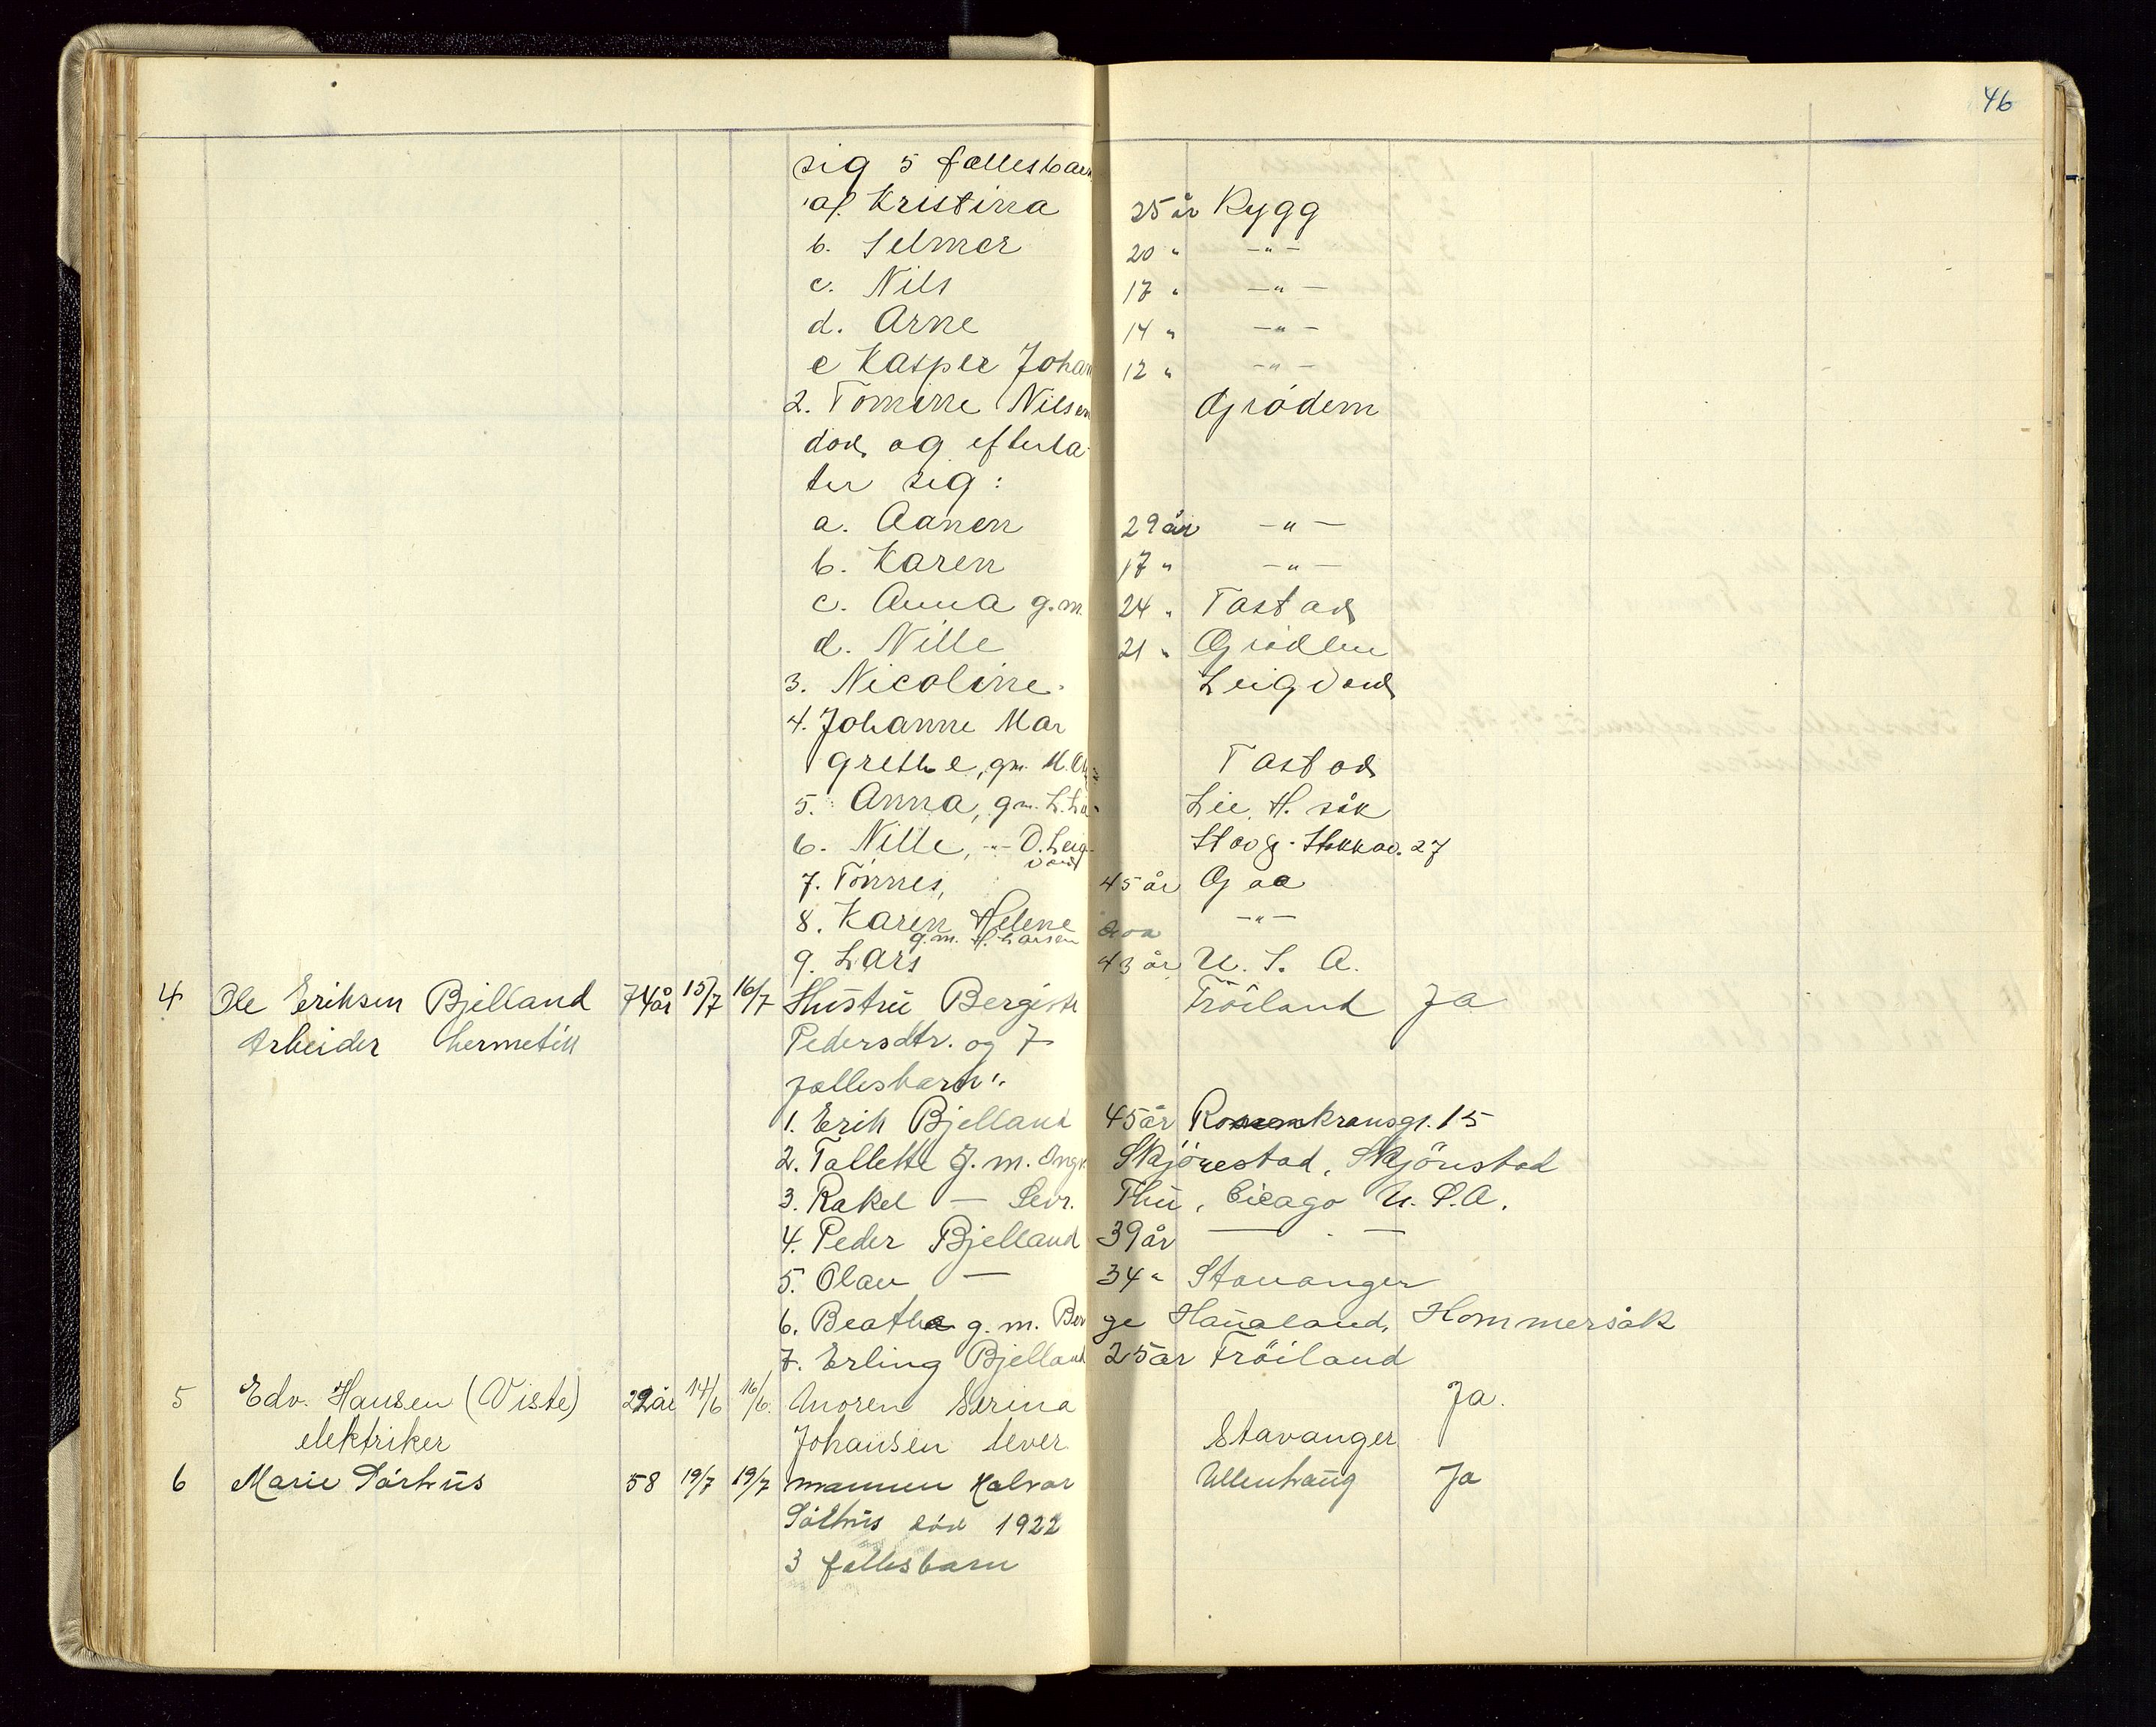 46
sig 5 fællesbarn
a. Kristina 25 år Rygg
b. Selmer 20 " -"-
c. Nils 17 " -"-
d. Arne 14 " -"-
e Kasper Johan 12 " -"-
2. Tomine Nilsen Grödem
död og efterla-
ter sig:
a. Aanen 29 år -"-
b. Karen 17 " -"-
c. Anna g.m. 24 " Tastad
d. Nille 21 " Grödem
3. Nicoline. Leigvand
4. Johanne Mar
grethe, gm. M. Tastad
5. Anna, gm. L. Lie Lie, H. såk
6. Nille, -"- O. Leig- Haug- Stokkav. 27
vand
7. Tönnes, 45 år Goa
8. Karen Helene död -"-
g.m. H. Larsen
9. Lars 43 år U. S. A.
4 Ole Eriksen Bjelland 74 år 15/7 16/7 Hustru Bergiste Fröiland Ja
Arbeider hermetikk Pedersdtr. og 7
fællesbarn:
1. Erik Bjelland 45 år Rosenkransgt. 15
2. Tallette g.m. Ingv. Skjörestad, Skjörestad
3. Rakel — Sevr. Thu, Cicago U.S.A.
4. Peder Bjelland 39 år — " —
5. Olav — 34 " Stavanger
6. Beathe g.m. Ber ge Haualand, Hommersåk
7. Erling Bjelland 25 år Fröiland
5 Edv. Hansen (Viste) 22 år 14/6 16/6. Moren Serina Ja.
elektriker Johansen lever Stavanger
6 Marie Sörhus 58 19/7 19/7 mannen Halvar Ullenhaug Ja
Sörhus död 1922
3 fællesbarn